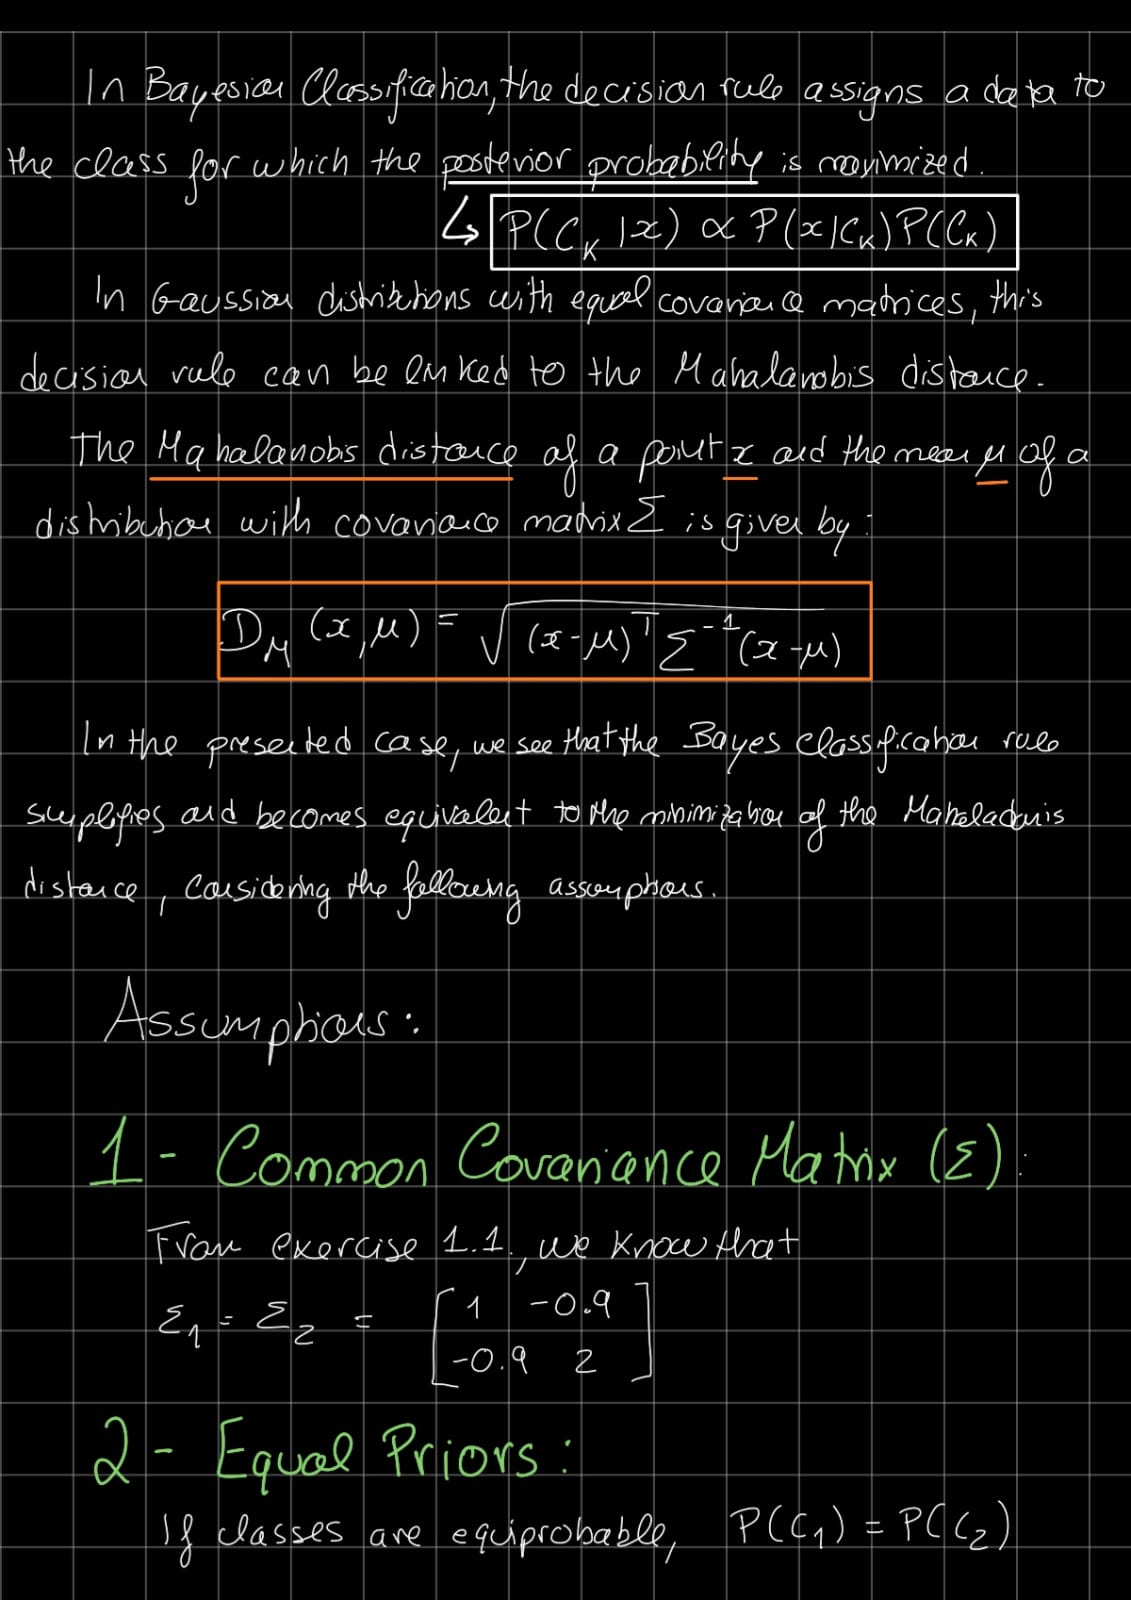 In Bayesian Classification, the decision rule assigns a data to
the class for which the posterior probability is maximized.
↳ P(C_K |x) ∝ P(x|C_K) P(C_K)
In Gaussian distributions with equal covariance matrices, this
decision rule can be linked to the Mahalanobis distance.
The Mahalanobis distance of a point x and the mean μ of a
distribution with covariance matrix Σ is given by:
D_M (x,μ) = √((x-μ)^T Σ^-1 (x-μ))
In the presented case, we see that the Bayes classification rule
simplifies and becomes equivalent to the minimization of the Mahaladanis
distance, considering the following assumptions.
Assumptions:
1 - Common Covariance Matrix (Σ):
From exercise 1.1., we know that
Σ_1 = Σ_2 = [1 -0.9
-0.9 2]
2 - Equal Priors:
If classes are equiprobable, P(C_1) = P(C_2)